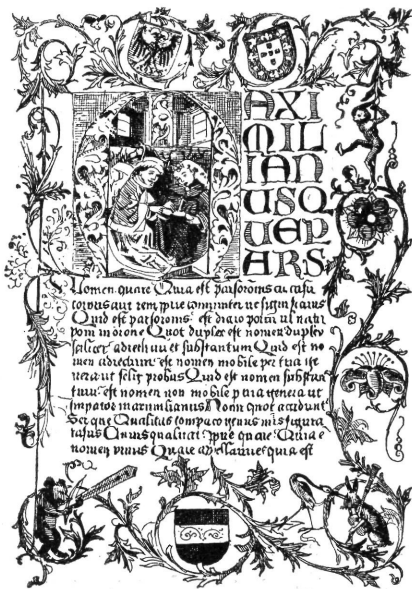 AXI
MIL
IAN
USQ
UEP
ARS
Nomen quare Quia est pars oronis cu casu
corpus aut rem pprie comuniter ue significans
Quid est pars oronis est ul
Quot duplex est nomen duplex
scilicet adiectiuu et substantiuum Quid est no
men adiectiuu est nomen mobile per tria ge
nera ut felix probus Quid est nomen substan
tiuu est nomen non mobile p tria genera ut
impator maximilianus Nomi quot accidunt
Sex que Qualitas compaco genus nus figura
casus pprie quare Quia e
nomen Quare quia est